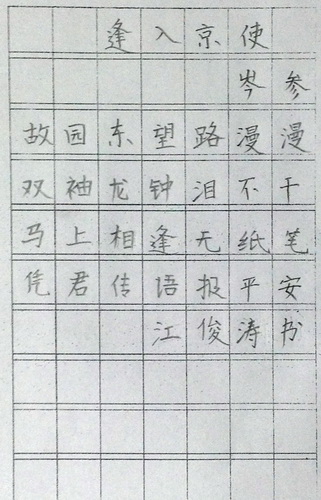 逢入京使
岑参
故园东望路漫漫
双袖龙钟泪不干
马上相逢无纸笔
凭君传语报平安
江俊涛书